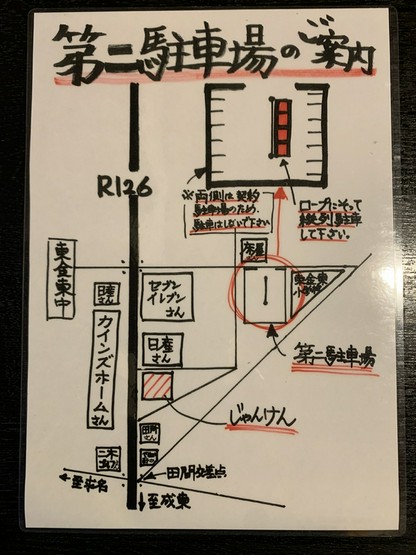 第二駐車場のご案内
R126
※両側は契約
駐車場のため、
駐車はしないで下さい
ロープにそって
縦列駐車
して下さい。
東金東中
日産
さん
セブン
イレブン
さん
床屋
東金東
小学校
カインズホーム
さん
日産
さん
第二駐車場
じゃんけん
田間交差点
至成東